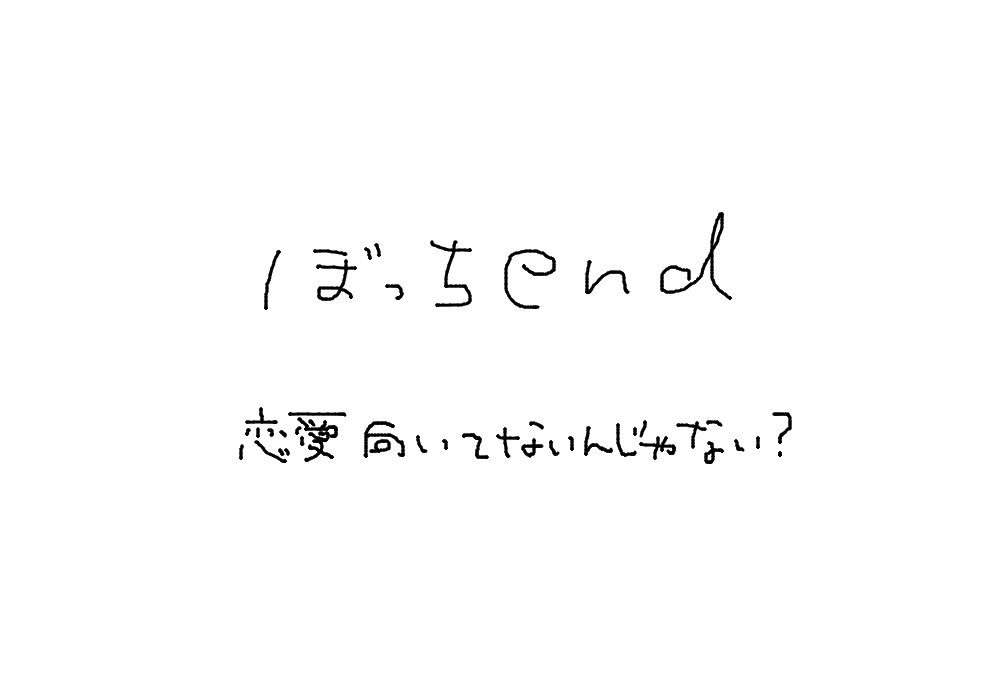 ぼっちend
恋愛向いてないんじゃない?